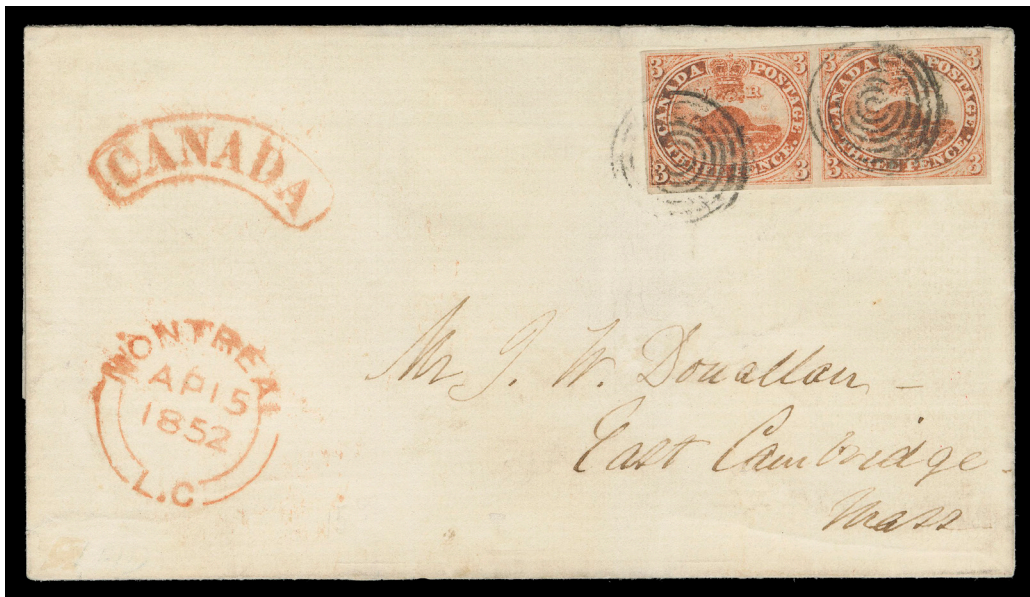 CANADA
3 CANADA POSTAGE 3
V R
3 THREE PENCE. 3
3 CANADA POSTAGE. 3
3 THREE PENCE. 3
MONTREAL
AP 15
1852
L.C
Mr J. W. Donallan
East Cambridge
Mass